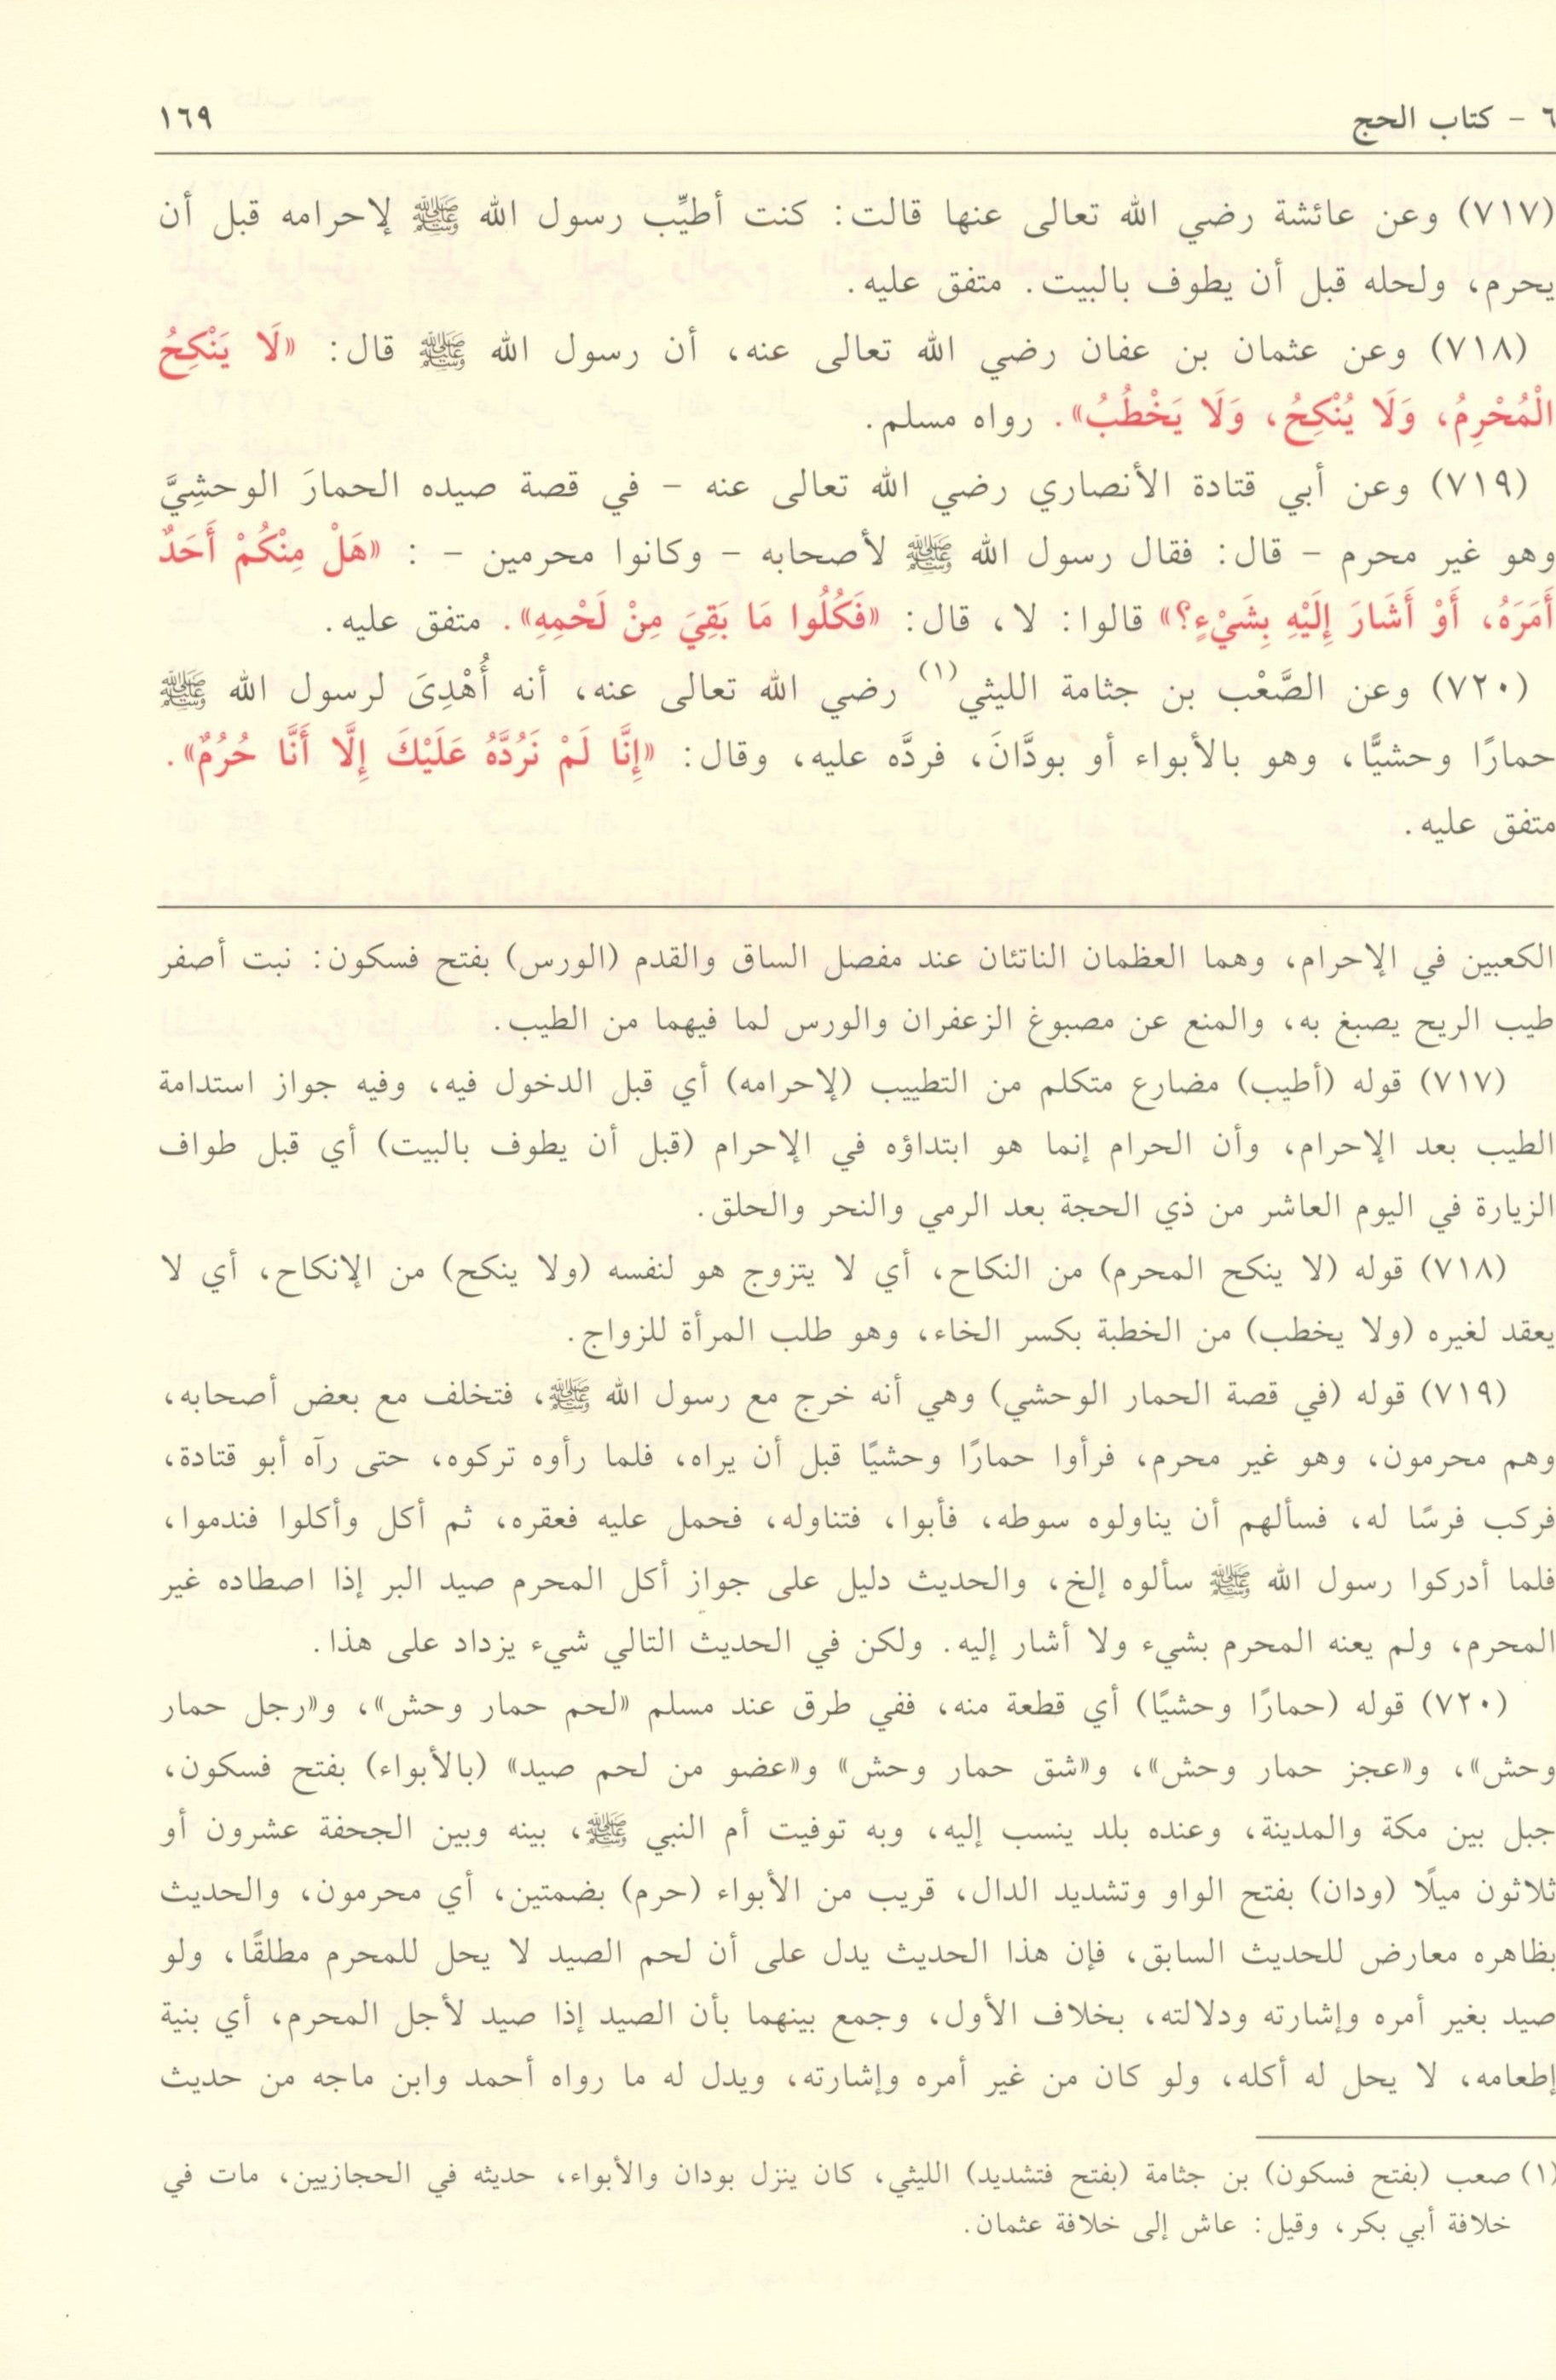 ٦ - كتاب الحج ١٦٩
(٧١٧) وعن عائشة رضي الله تعالى عنها قالت: كنت أطيِّب رسول الله ﷺ لإحرامه قبل أن
يحرم، ولحله قبل أن يطوف بالبيت. متفق عليه.
(٧١٨) وعن عثمان بن عفان رضي الله تعالى عنه، أن رسول الله ﷺ قال: «لَا يَنْكِحُ
الْمُحْرِمُ، وَلَا يُنْكِحُ، وَلَا يَخْطُبُ». رواه مسلم.
(٧١٩) وعن أبي قتادة الأنصاري رضي الله تعالى عنه - في قصة صيده الحمارَ الوحشِيَّ
وهو غير محرم - قال: فقال رسول الله ﷺ لأصحابه - وكانوا محرمين - : «هَلْ مِنْكُمْ أَحَدٌ
أَمَرَهُ، أَوْ أَشَارَ إِلَيْهِ بِشَيْءٍ؟» قالوا: لا، قال: «فَكُلُوا مَا بَقِيَ مِنْ لَحْمِهِ». متفق عليه.
(٧٢٠) وعن الصَّعْب بن جثامة الليثي(١) رضي الله تعالى عنه، أنه أُهْدِىَ لرسول الله ﷺ
حمارًا وحشيًّا، وهو بالأبواء أو بودَّانَ، فردَّه عليه، وقال: «إِنَّا لَمْ نَرُدَّهُ عَلَيْكَ إِلَّا أَنَّا حُرُمٌ».
متفق عليه.
الكعبين في الإحرام، وهما العظمان الناتئان عند مفصل الساق والقدم (الورس) بفتح فسكون: نبت أصفر
طيب الريح يصبغ به، والمنع عن مصبوغ الزعفران والورس لما فيهما من الطيب.
(٧١٧) قوله (أطيب) مضارع متكلم من التطييب (لإحرامه) أي قبل الدخول فيه، وفيه جواز استدامة
الطيب بعد الإحرام، وأن الحرام إنما هو ابتداؤه في الإحرام (قبل أن يطوف بالبيت) أي قبل طواف
الزيارة في اليوم العاشر من ذي الحجة بعد الرمي والنحر والحلق.
(٧١٨) قوله (لا ينكح المحرم) من النكاح، أي لا يتزوج هو لنفسه (ولا ينكح) من الإنكاح، أي لا
يعقد لغيره (ولا يخطب) من الخطبة بكسر الخاء، وهو طلب المرأة للزواج.
(٧١٩) قوله (في قصة الحمار الوحشي) وهي أنه خرج مع رسول الله ﷺ، فتخلف مع بعض أصحابه،
وهم محرمون، وهو غير محرم، فرأوا حمارًا وحشيًا قبل أن يراه، فلما رأوه تركوه، حتى رآه أبو قتادة،
فركب فرسًا له، فسألهم أن يناولوه سوطه، فأبوا، فتناوله، فحمل عليه فعقره، ثم أكل وأكلوا فندموا،
فلما أدركوا رسول الله ﷺ سألوه إلخ، والحديث دليل على جواز أكل المحرم صيد البر إذا اصطاده غير
المحرم، ولم يعنه المحرم بشيء ولا أشار إليه. ولكن في الحديث التالي شيء يزداد على هذا.
(٧٢٠) قوله (حمارًا وحشيًا) أي قطعة منه، ففي طرق عند مسلم «لحم حمار وحش»، و«رجل حمار
وحش»، و«عجز حمار وحش»، و«شق حمار وحش» و«عضو من لحم صيد» (بالأبواء) بفتح فسكون،
جبل بين مكة والمدينة، وعنده بلد ينسب إليه، وبه توفيت أم النبي ﷺ، بينه وبين الجحفة عشرون أو
ثلاثون ميلًا (ودان) بفتح الواو وتشديد الدال، قريب من الأبواء (حرم) بضمتين، أي محرمون، والحديث
بظاهره معارض للحديث السابق، فإن هذا الحديث يدل على أن لحم الصيد لا يحل للمحرم مطلقًا، ولو
صيد بغير أمره وإشارته ودلالته، بخلاف الأول، وجمع بينهما بأن الصيد إذا صيد لأجل المحرم، أي بنية
إطعامه، لا يحل له أكله، ولو كان من غير أمره وإشارته، ويدل له ما رواه أحمد وابن ماجه من حديث
(١) صعب (بفتح فسكون) بن جثامة (بفتح فتشديد) الليثي، كان ينزل بودان والأبواء، حديثه في الحجازيين، مات في
خلافة أبي بكر، وقيل: عاش إلى خلافة عثمان.